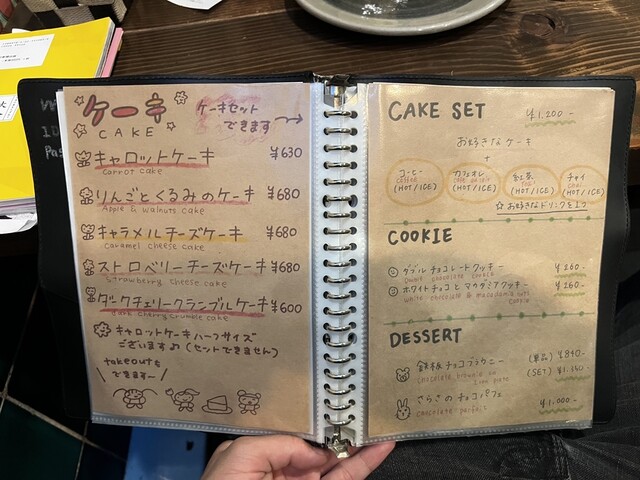 ケーキ
CAKE
ケーキセット
できます
キャロットケーキ ¥630
carrot cake
りんごとくるみのケーキ ¥680
Apple & walnuts cake
キャラメルチーズケーキ ¥680
caramel cheese cake
ストロベリーチーズケーキ ¥680
strawberry cheese cake
ダークチェリークランブルケーキ ¥600
Dark cherry crumble cake
キャロットケーキハーフサイズ
ございます♪(セットできません)
takeoutも
できます〜
CAKE SET ¥1,200-
お好きなケーキ
+
コーヒー
coffee
(HOT/ICE)
カフェオレ
(HOT/ICE)
紅茶
(HOT/ICE)
チャイ
chai
(HOT/ICE)
☆お好きなドリンクを1つ
COOKIE
ダブルチョコレートクッキー ¥260-
chocolate cookie
ホワイトチョコとマカダミアクッキー ¥260-
white chocolate & macadamia nuts
cookie
DESSERT
鉄板チョコブラウニー (単品) ¥840-
chocolate brownie on
iron plate
(SET) ¥1,140-
きらきのチョコパフェ ¥1,000-
chocolate parfait